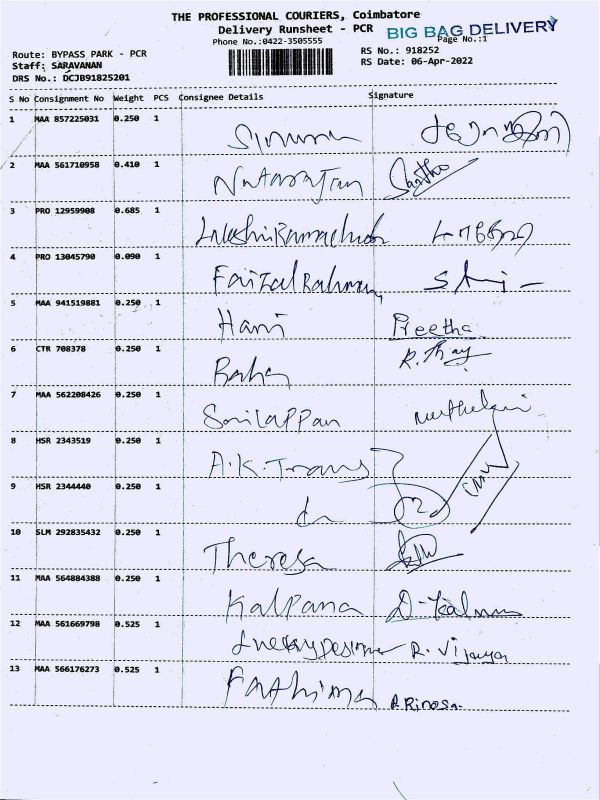 THE PROFESSIONAL COURIERS, Coimbatore
Delivery Runsheet - PCR BIG BAG DELIVERY
Phone No.:0422-3505555 Page No.:1
Route: BYPASS PARK - PCR RS No.: 918252
Staff: SARAVANAN RS Date: 06-Apr-2022
DRS No.: DCJB91825201
S No Consignment No Weight PCS Consignee Details Signature
1 MAA 857225031 0.250 1
2 MAA 561710958 0.410 1 Natarajan
3 PRO 12959908 0.685 1
4 PRO 13045790 0.090 1 Faizal Rahman
5 MAA 941519881 0.250 1 Hani Preetha
6 CTR 708378 0.250 1
7 MAA 562208426 0.250 1
8 HSR 2343519 0.250 1 A.K.Trans
9 HSR 2344440 0.250 1
10 SLM 292835432 0.250 1 Theresa
11 MAA 564884388 0.250 1 Kalpana
12 MAA 561669798 0.525 1 R. Vijaya
13 MAA 566176273 0.525 1 Fathima A.Rinosa